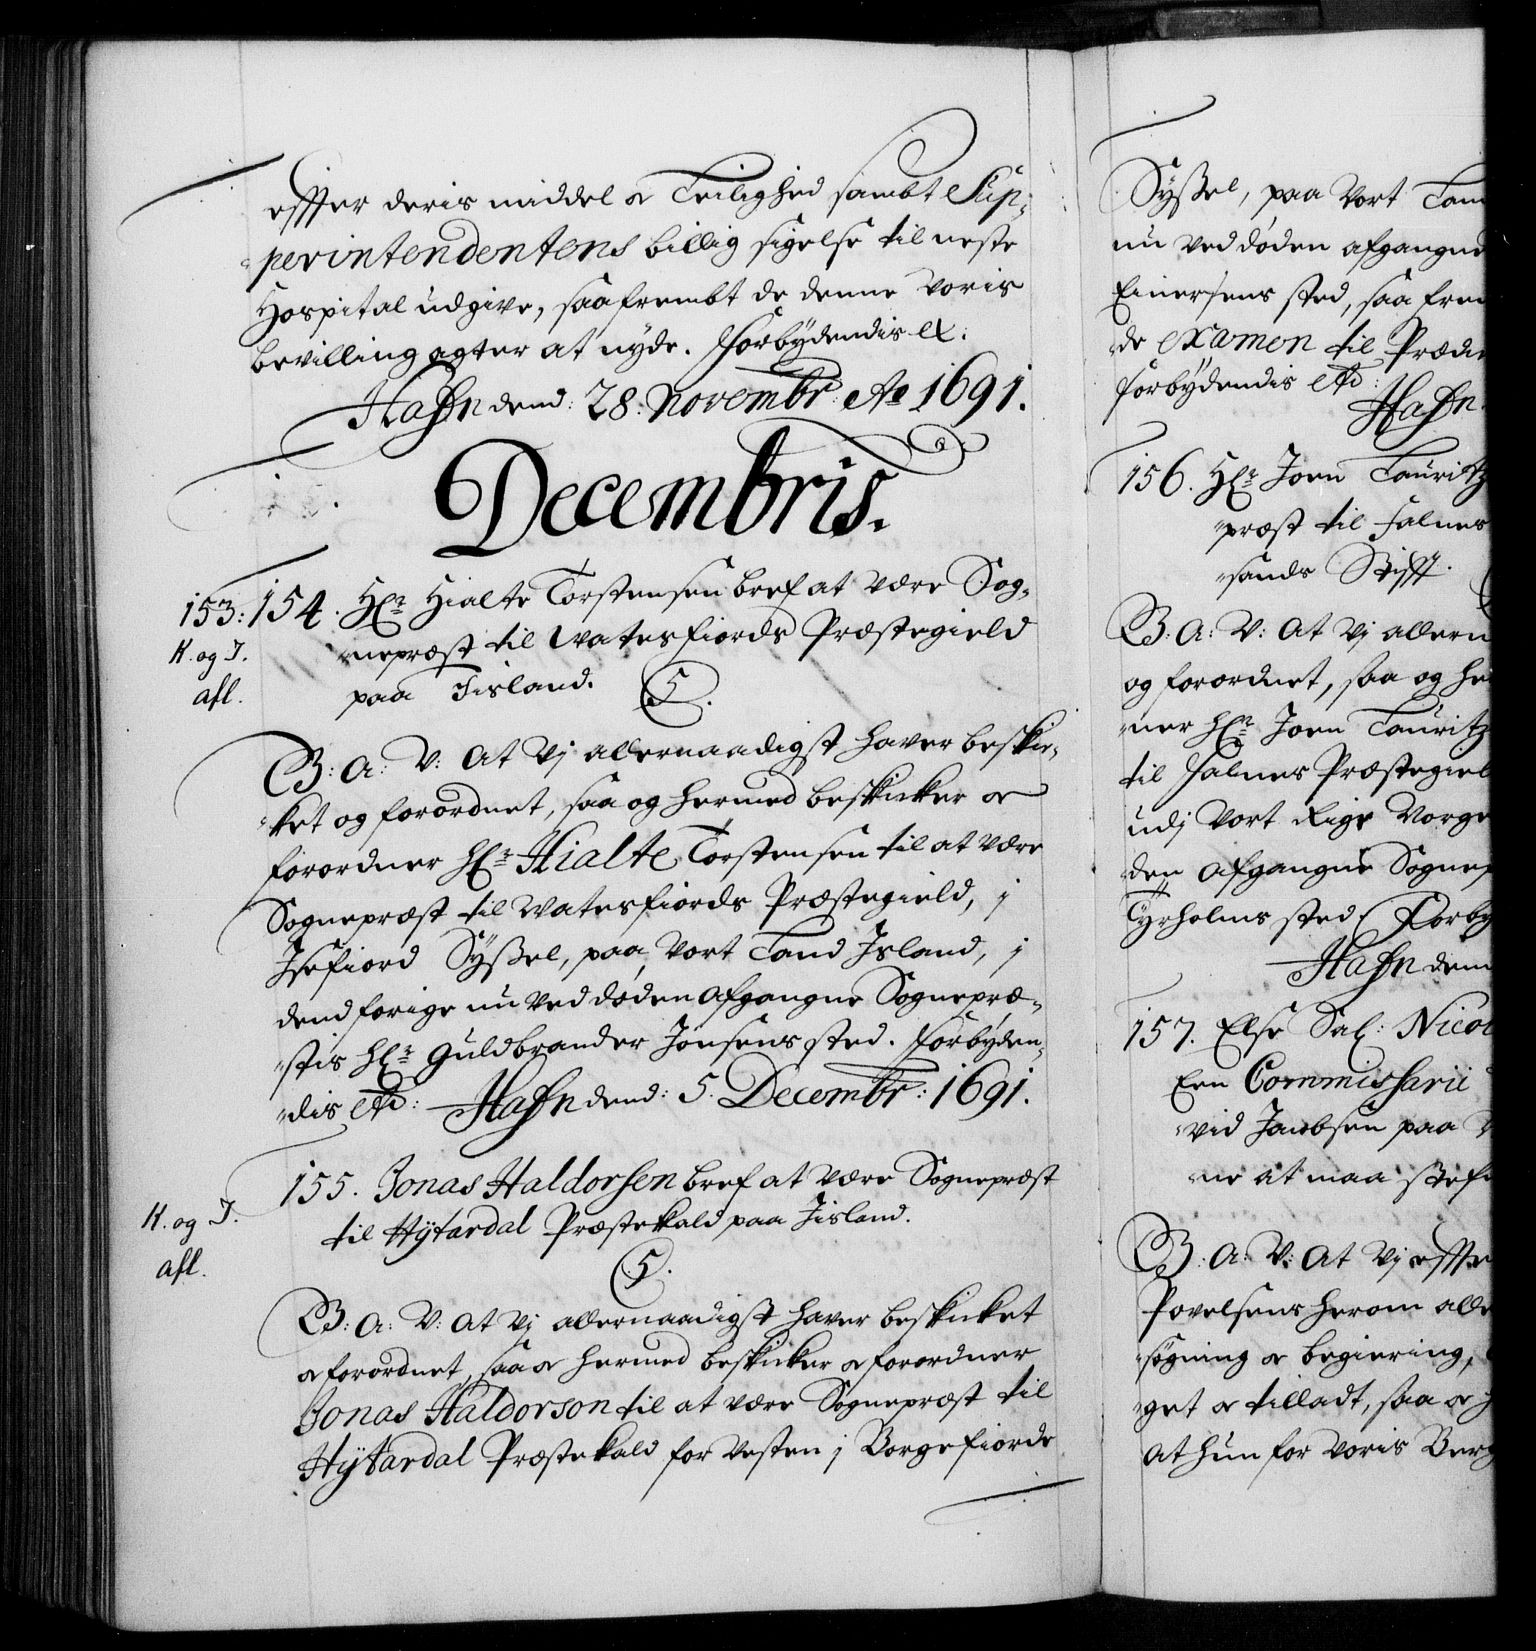 effter deris middel oc Leilighed sambt Sup-
perintendentens billig sigelse til neste
Hospital udgive, saafrembt de denne voris
bevilling agter at nyde. Forbydendis etc:
Hafn dend: 28: Novembr: Ao 1691.
Decembris.
153: 154. Hr: Hialte Torstensen bref at være Sog-
nepræst til Watesfiords Præstegield
paa Jisland. 5.
K. og I.
afl.
G: A: V: At Vj allernaadigst hafver beskic-
ket og forordnet, saa og hermed beskicker oc
forordner Hr: Hialte Torstensen til at være
Sognepræst til Watesfiords Præstegield, j
Isefiord Sÿssel, paa Vort Land Island, j
dend forige nu ved døden afgangne Sogneprę-
stis Hr: Guldbrander Jonsens sted. Forbÿden-
dis etc: Hafn dend: 5. Decembr: 1691.
155. Jonas Haldorsen bref at være Sognepræst
til Hÿtardal Præstekald paa Jisland.
5.
K. og I.
afl.
G: A: V: At Vj allernaadigst hafver beskicket
oc forordnet, saa oc hermed beskicker oc forordner
Jonas Haldorson til at være Sognepræst til
Hÿtardal Præstekald for Vesten j Borgefiords
Sÿssel, paa Vort Lan
nu ved døden afgangne
Einersens sted, saa frem
de examen til Prædi
forbÿdendis etc:
Hafn
156. Hr: Joen Lauritz
præst til Falnes
sands Stifft.
G: A: V: At Vj allern
og forordnet, saa og he
ner Hr: Joen Lauritz
til Falnes Præstegiel
udj Vort Rige Norge
den afgangne Sognep
Tÿrholms sted. Forbÿ
Hafn dend
157. Else Sal: Nicol
Een Commissarii
vid Jacobsen paa
ne at maa stefn
G: A: V: At Vj effte
Povelsens herom alle
søgning oc begiering,
get oc tilladt, saa oc h
at hun for voris Berg